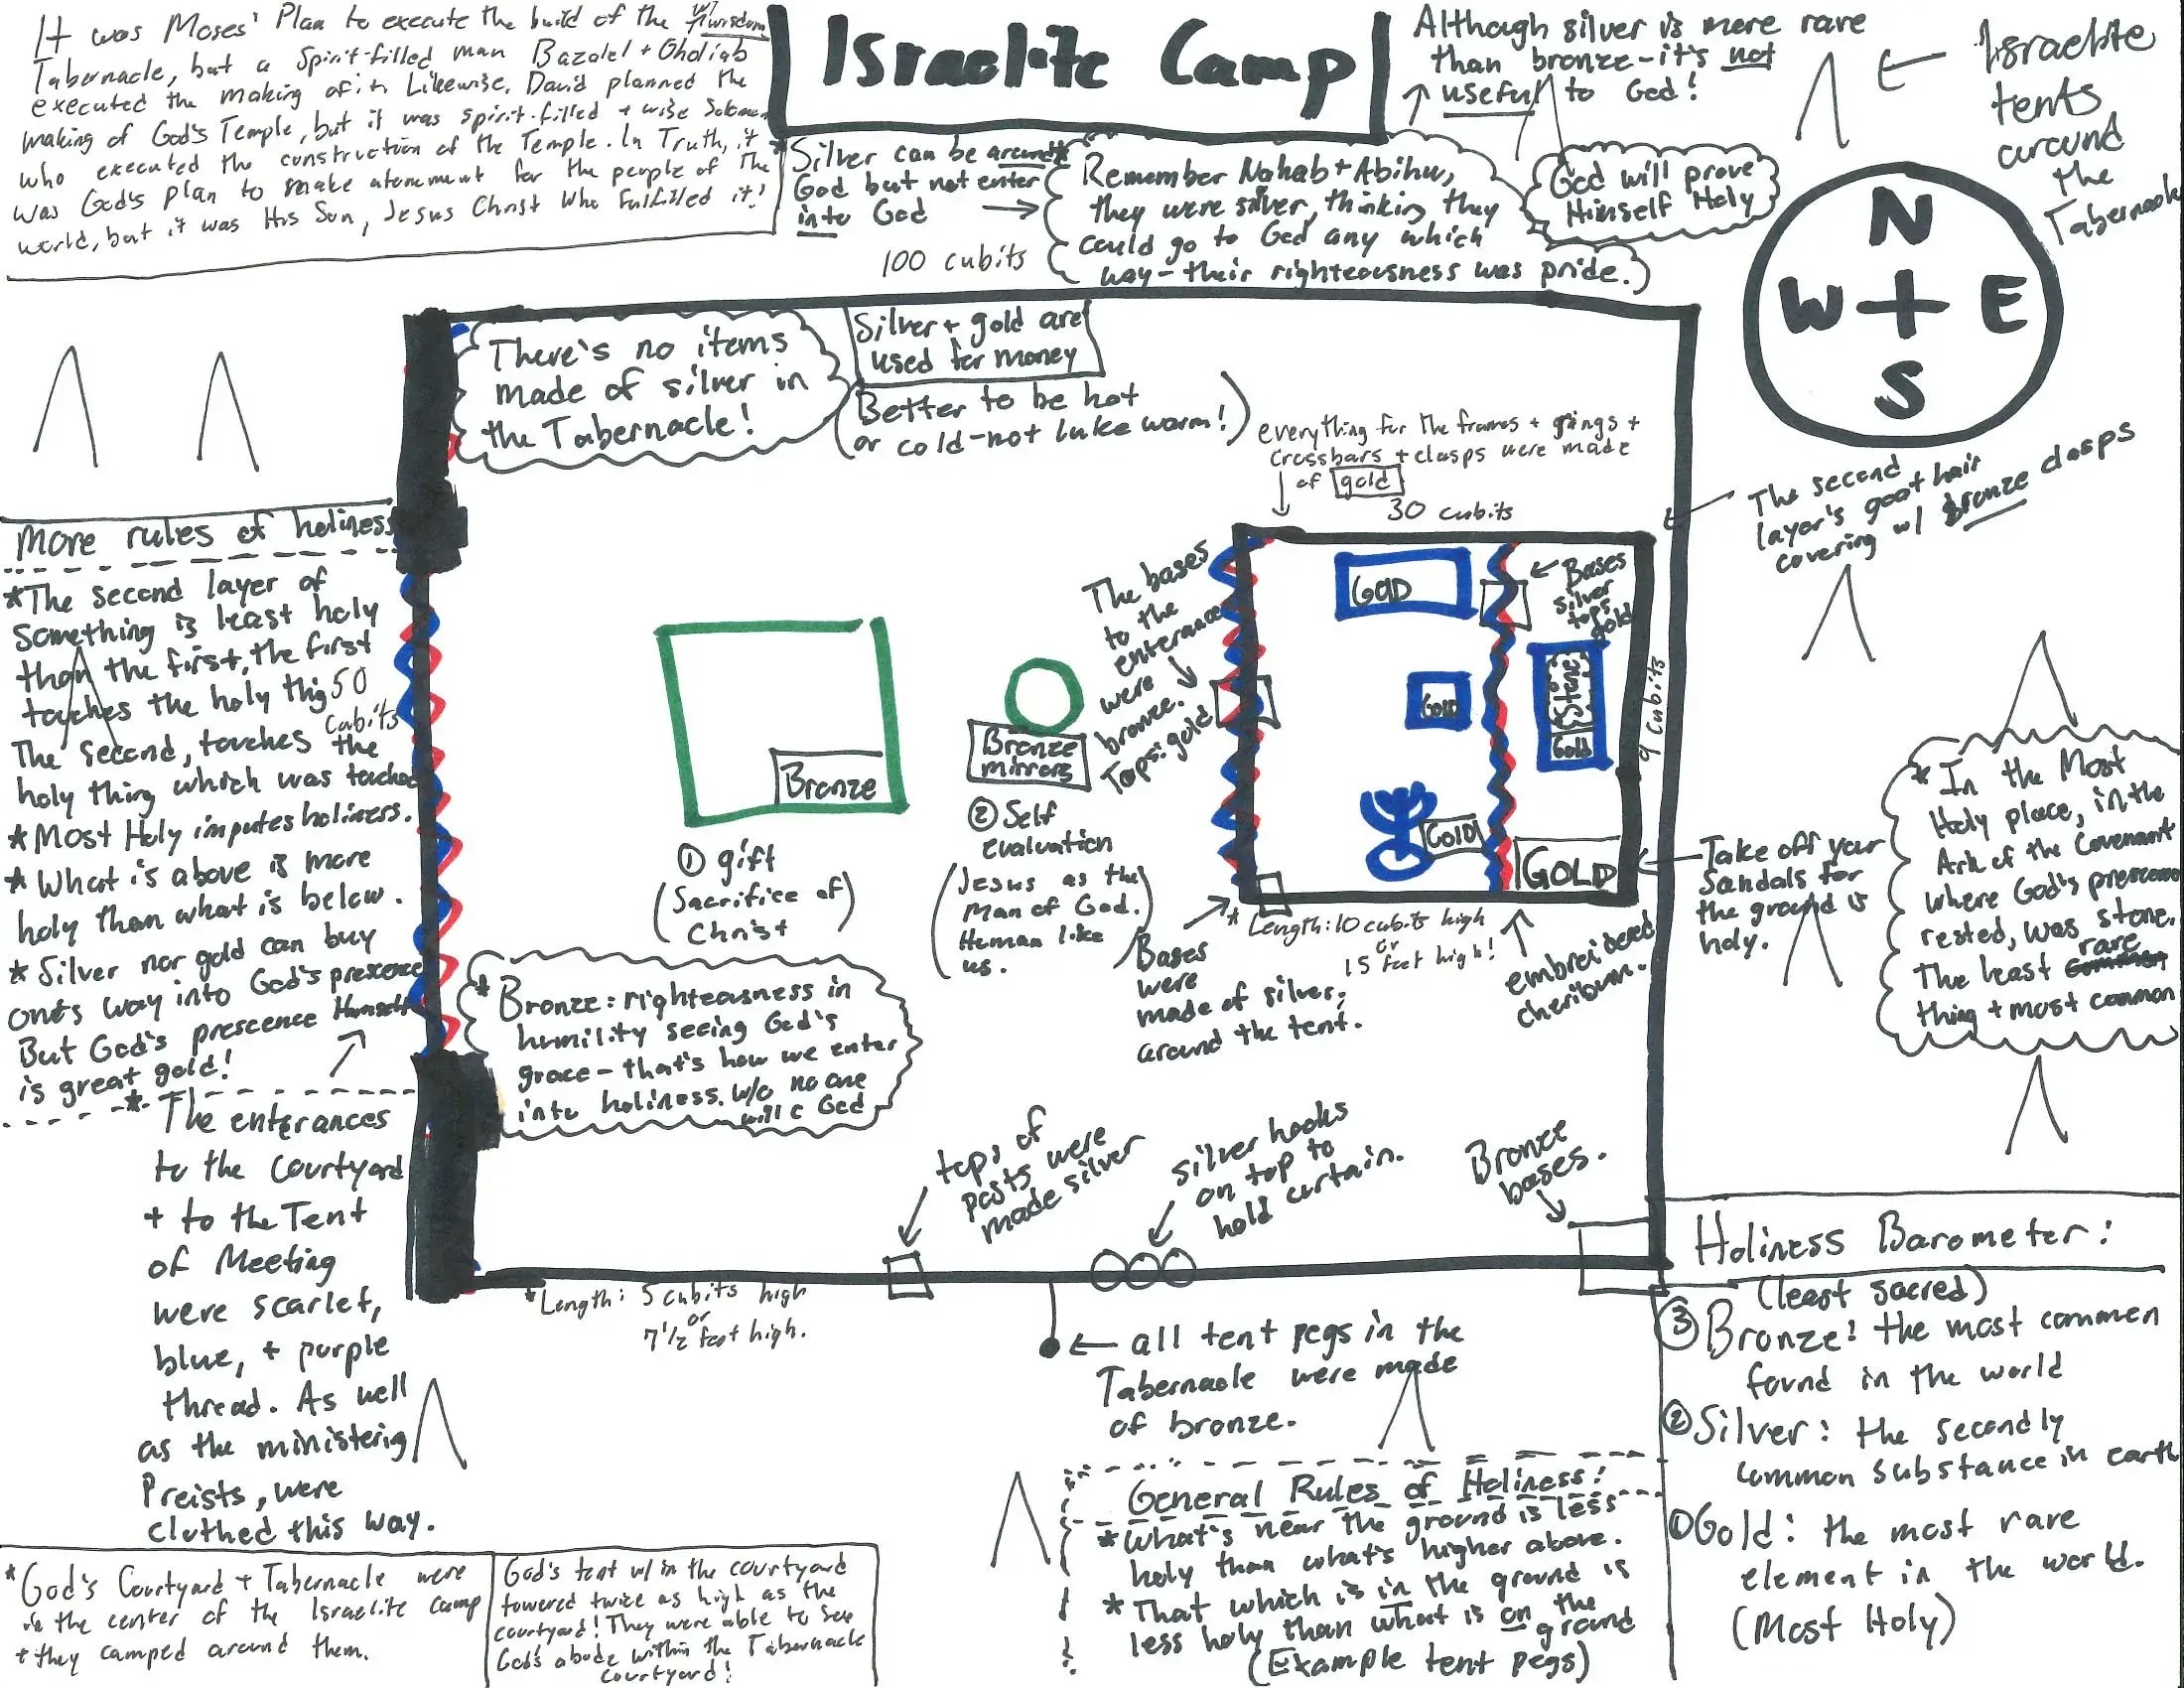 It was Moses' Plan to execute the build of the
Tabernacle, but a Spirit-filled man w/ wisdom Bazalel + Oholiab
executed the making of it. Likewise, David planned the
making of God's Temple, but it was spirit-filled + wise Solomon
who executed the construction of the Temple. In Truth, it
was God's plan to make atonement for the people of the
world, but it was His Son, Jesus Christ who fulfilled it!
Israelite Camp
Although silver is more rare
than bronze-it's not
useful to God!
Israelite
tents
around
the
Tabernacle
* Silver can be around
God but not enter
into God
Remember Nahab + Abihu,
they were silver, thinking they
could go to God any which
way - their righteousness was pride.)
God will prove
Himself Holy
N
W E
S
100 cubits
There's no items
made of silver in
the Tabernacle!
Silver + gold are
used for money
(Better to be hot
or cold-not luke worm!)
everything for the frames + rings +
crossbars + clasps were made
of gold
30 cubits
The second
layer's goat hair
covering w/ bronze clasps
More rules of holiness
*The second layer of
something is least holy
than the first, the first
touches the holy thig
The second, touches the
holy thing which was touched
* Most Holy imputes holiness.
* What is above is more
holy than what is below.
* Silver nor gold can buy
one's way into God's prescence
But God's prescence Himself
is great gold!
50
cubits
Bronze
① gift
(Sacrifice of
Christ)
Bronze
mirrors
② Self
evaluation
(Jesus as the
Man of God.
Human like
us.)
The bases
to the
enterance
were
bronze.
Tops: gold
GOLD
Gold
Gold
Bases
silver
tops
gold
Stone
Gold
GOLD
9 cubits
* Length: 10 cubits high
or
15 feet high!
Bases
were
made of silver,
around the tent.
embroidered
cheribum.
Take off your
Sandals for
the ground is
holy.
* In the Most
Holy place, in the
Ark of the Covenant
where God's prescence
rested, was stone.
The least rare
thing + most common
* Bronze: righteousness in
humility seeing God's
grace - that's how we enter
into holiness. w/o no one
will c God
* The enterances
to the Courtyard
+ to the Tent
of Meeting
were scarlet,
blue, + purple
thread. As well
as the ministerig
Preists, were
clothed this way.
tops of
posts were
made silver
silver hooks
on top to
hold curtain.
Bronze
bases.
*Length: 5 cubits high
or
7 1/2 feet high.
all tent pegs in the
Tabernacle were made
of bronze.
Holiness Barometer:
(least sacred)
③ Bronze: the most common
found in the world
② Silver: the secondly
common substance in earth
① Gold: the most rare
element in the world.
(Most Holy)
General Rules of Holiness:
* What's near the ground is less
holy than what's higher above.
* That which is in the ground is
less holy than what is on the
ground
(Example tent pegs)
* God's Courtyard + Tabernacle were
in the center of the Israelite camp
+ they camped around them.
God's tent w/in the courtyard
towered twice as high as the
courtyard! They were able to see
God's abode within the Tabernacle
courtyard!